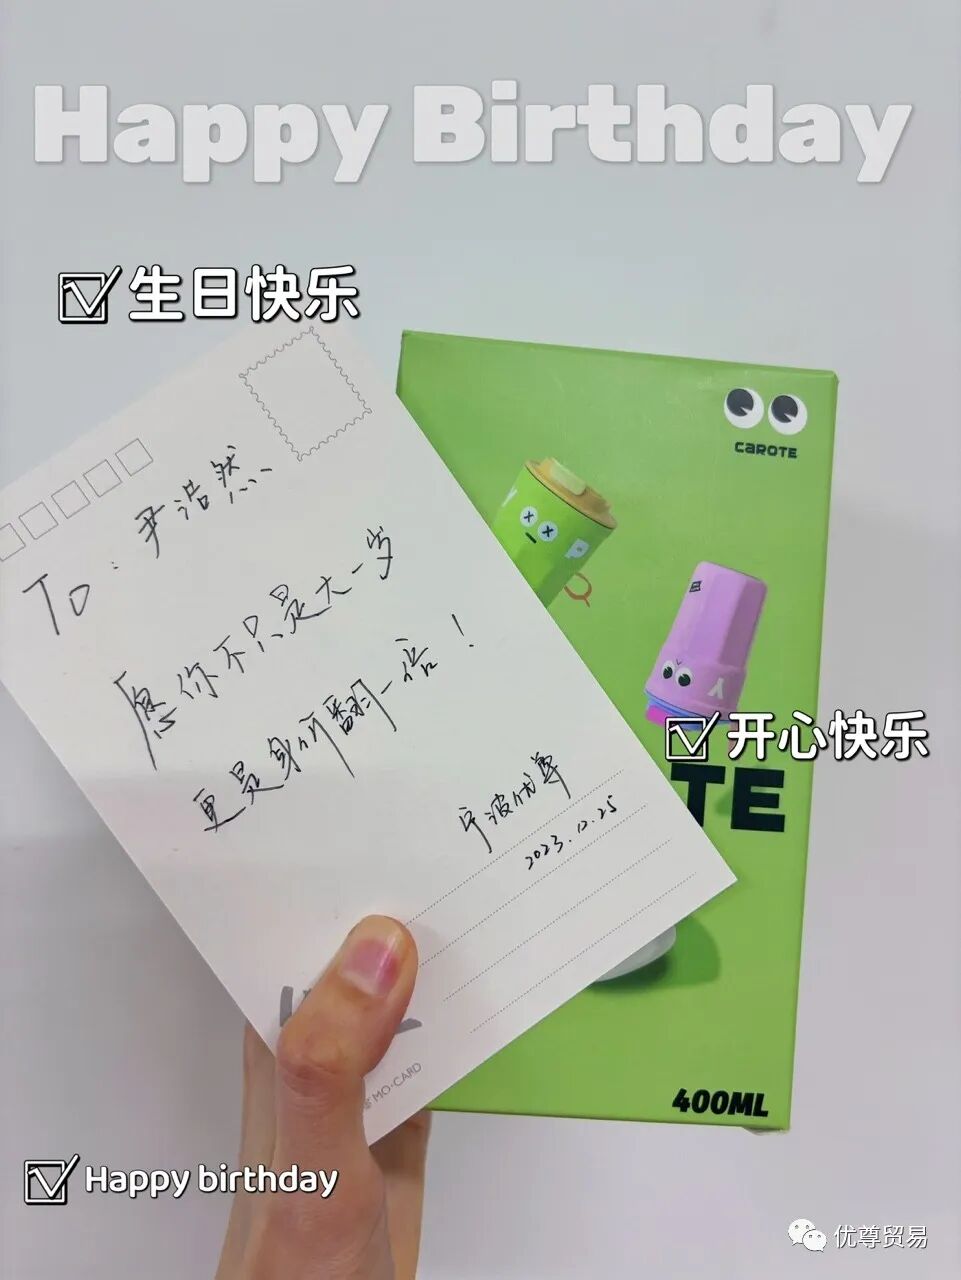 Happy Birthday
生日快乐
CAROTE
To：尹浩然
愿你不只是大一岁
更是身价翻一倍！
宁波优尊
2023.12.25
开心快乐
TE
MO·CARD
400ML
Happy birthday
优尊贸易